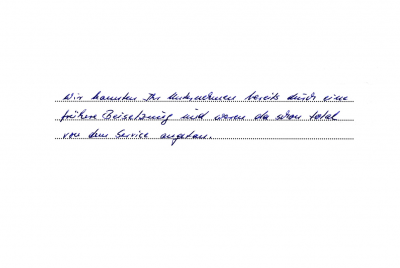 Wir kannten Ihr Unternehmen bereits durch eine
frühere Beisetzung und waren da schon total
von dem Service angetan.